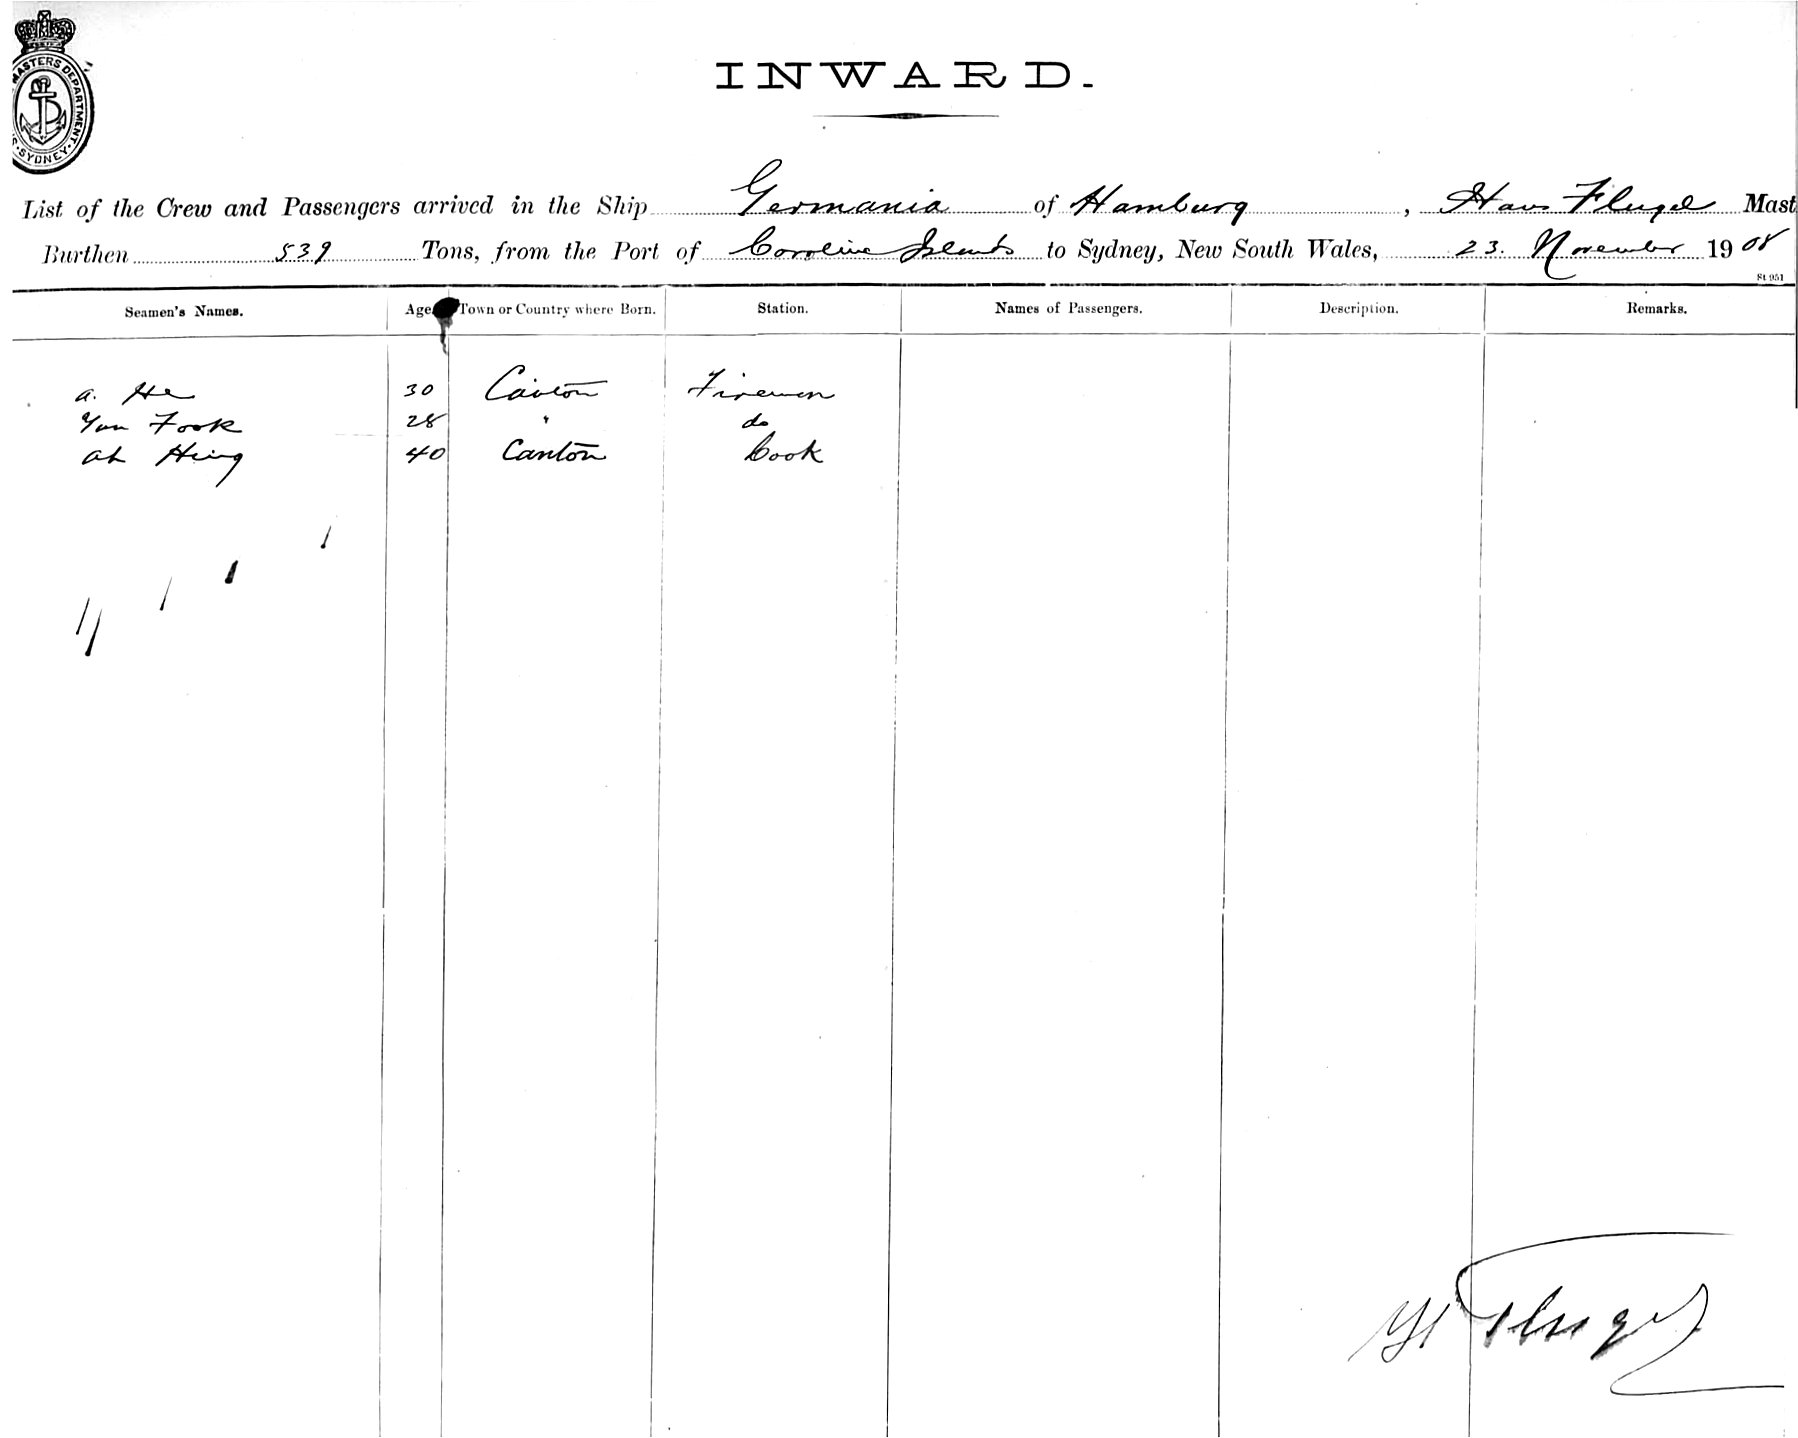 MASTERS DEPARTMENT
SYDNEY
INWARD.
List of the Crew and Passengers arrived in the Ship Germania of Hamburg, Hans Flugel Mast
Burthen 539 Tons, from the Port of Caroline Islands to Sydney, New South Wales, 23. November 1908
St 951
Seamen's Names. Age Town or Country where Born. Station. Names of Passengers. Description. Remarks.
a. He 30 Canton Fireman
Yun Fook 28 " do
ah Hing 40 Canton Cook
H Flugel